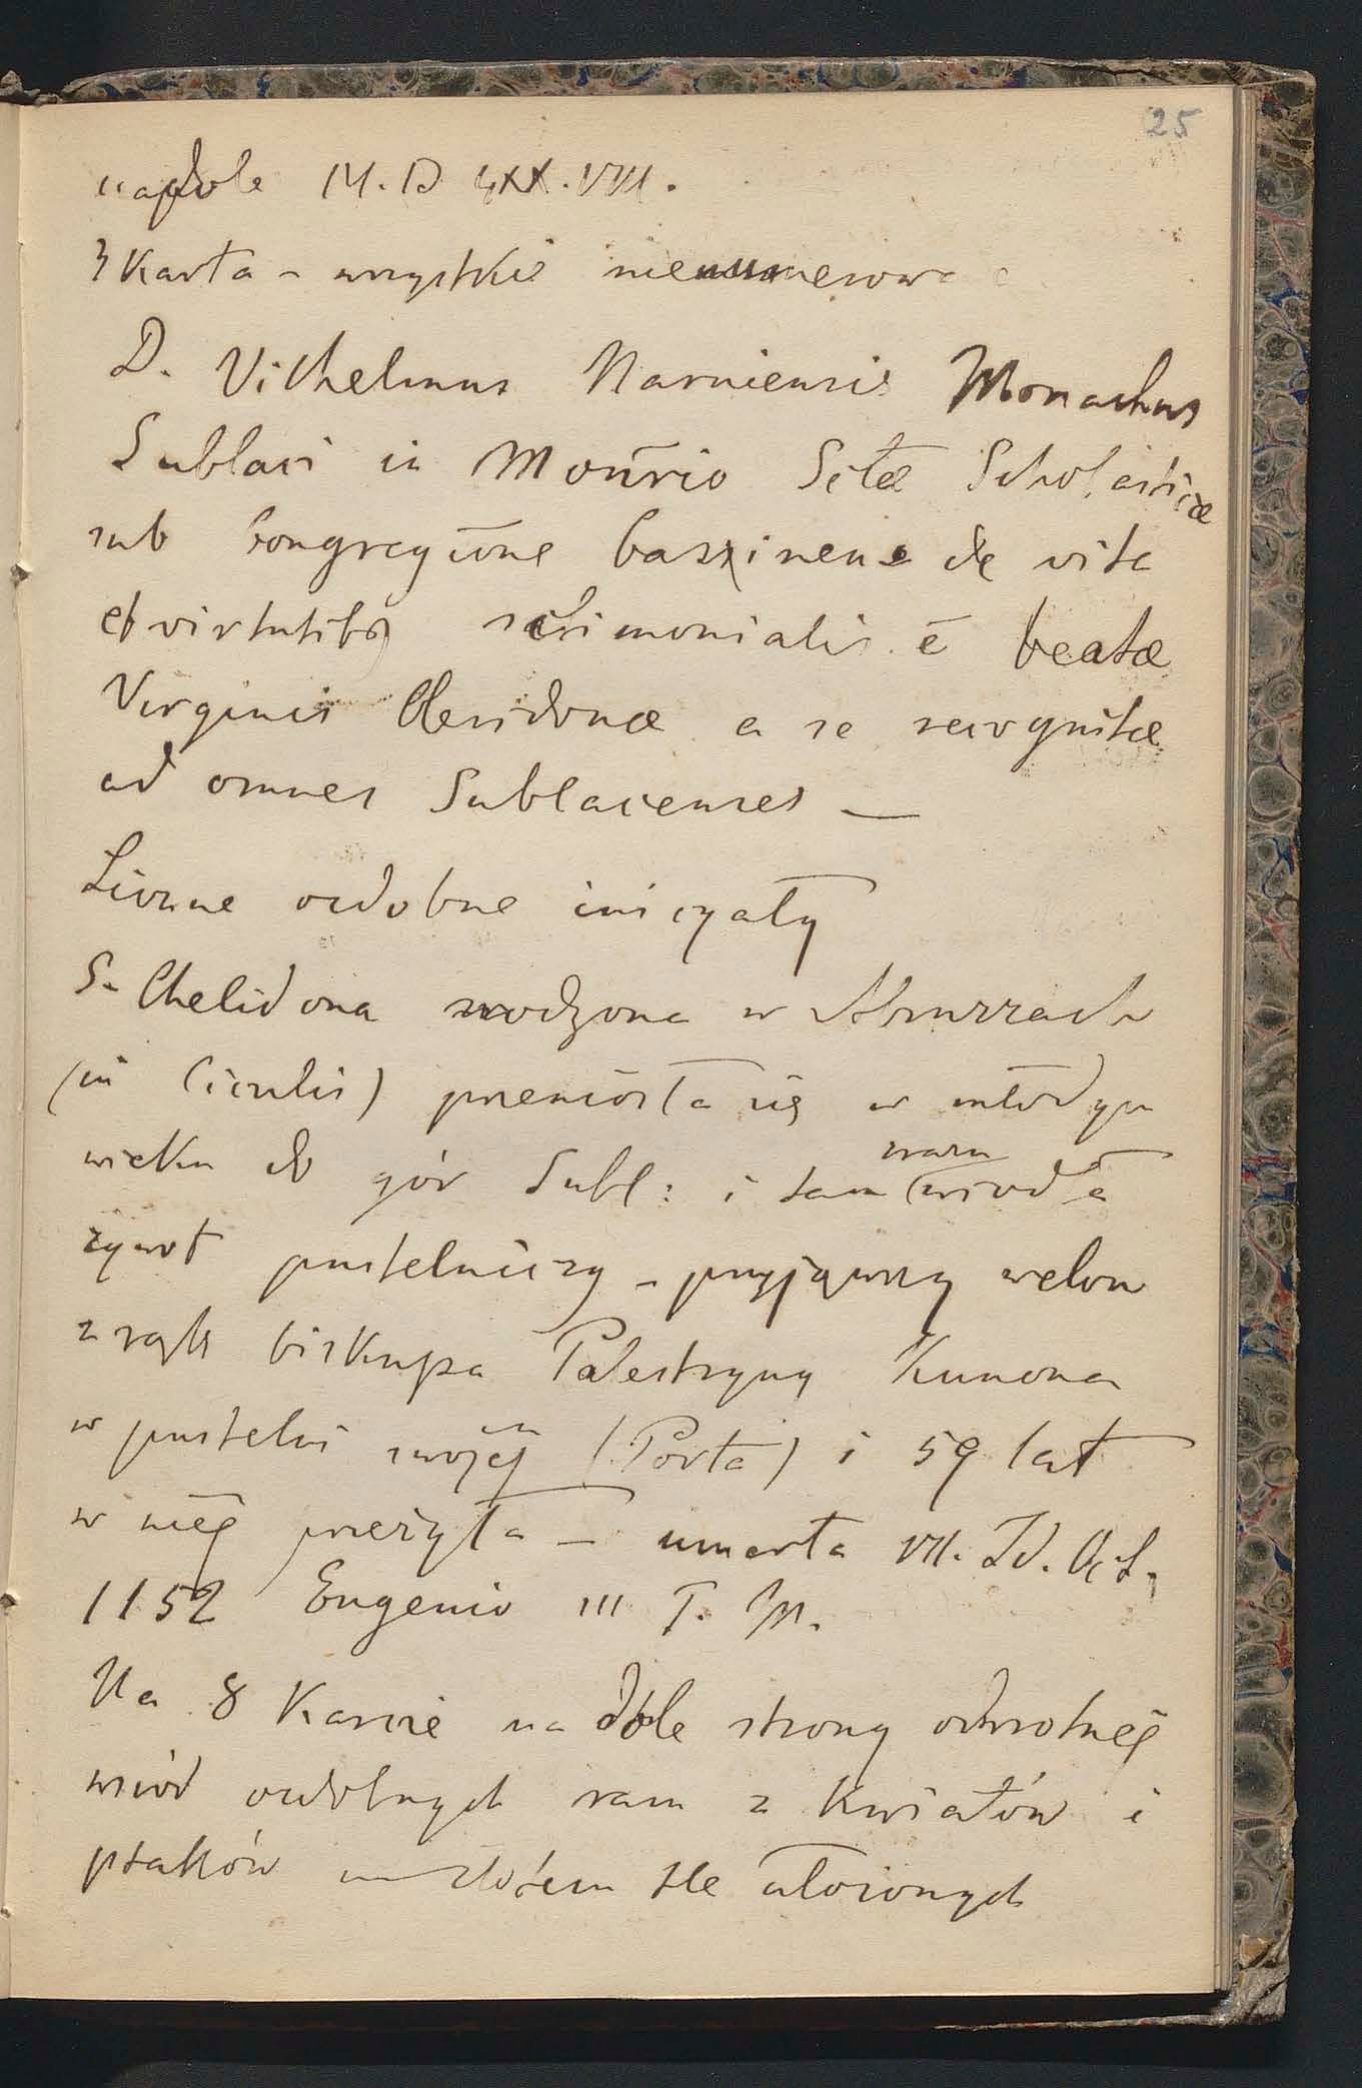 25
na dole M. D LXX. VIII.
3 Karta - wszystkie nienumerow
D. Vilhelmus Narniensis Monachus
Sublaci in Moñrio Sctæ Scholasticæ
sub Congregīōne Cassinens de vita
et virtutibȝ beatæ
Virginis Cleridonæ a se recognitæ
ad omnes Sublacenses —
Liczne ozdobne inicyały
S. Chelidona urodzona w Abruzzach
(in Ciculis) przeniosła się w młodym
wieku do gór Subl: i tam wiodła
żywot pustelniczy - przyjąwszy welon
z rąk biskupa Palestryny Kunona
w pustelni swojéj (Porta) i 59 lat
w niéj przeżyła — umarła VII. Id. Oct.
1152 Eugenio III P. M.
Na 8 Karcie na dole strony odwrotnéj
wśród ozdobnych ram z Kwiatów i
ptaków tle ułożonych